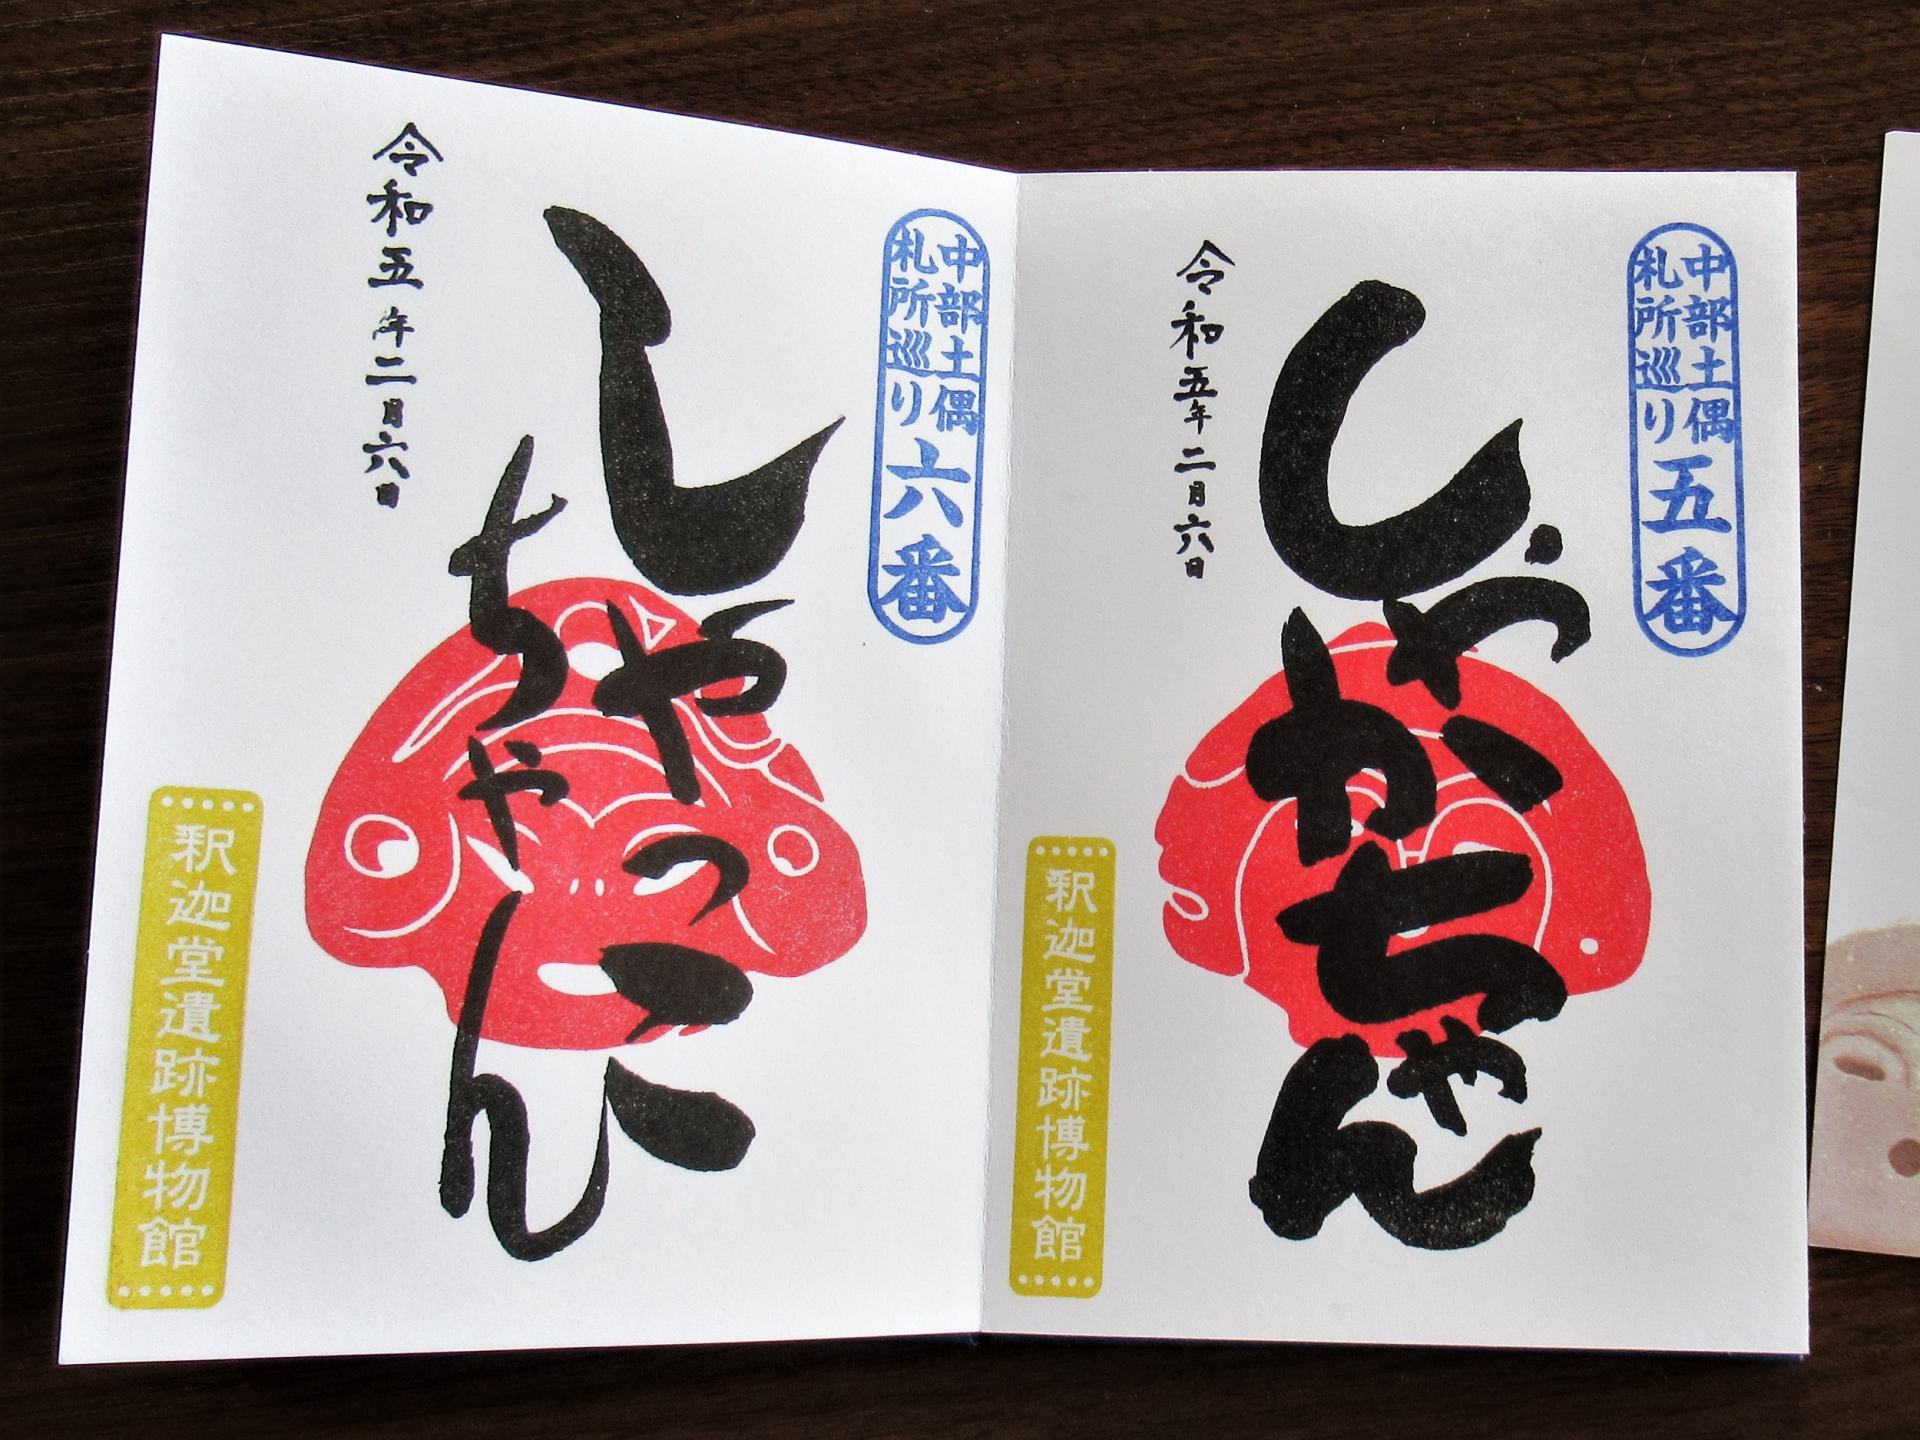 中部土偶
札所巡り
五番
しゃかちゃん
令和五年二月六日
釈迦堂遺跡博物館
中部土偶
札所巡り
六番
しゃっこ
ちゃん
令和五年二月六日
釈迦堂遺跡博物館